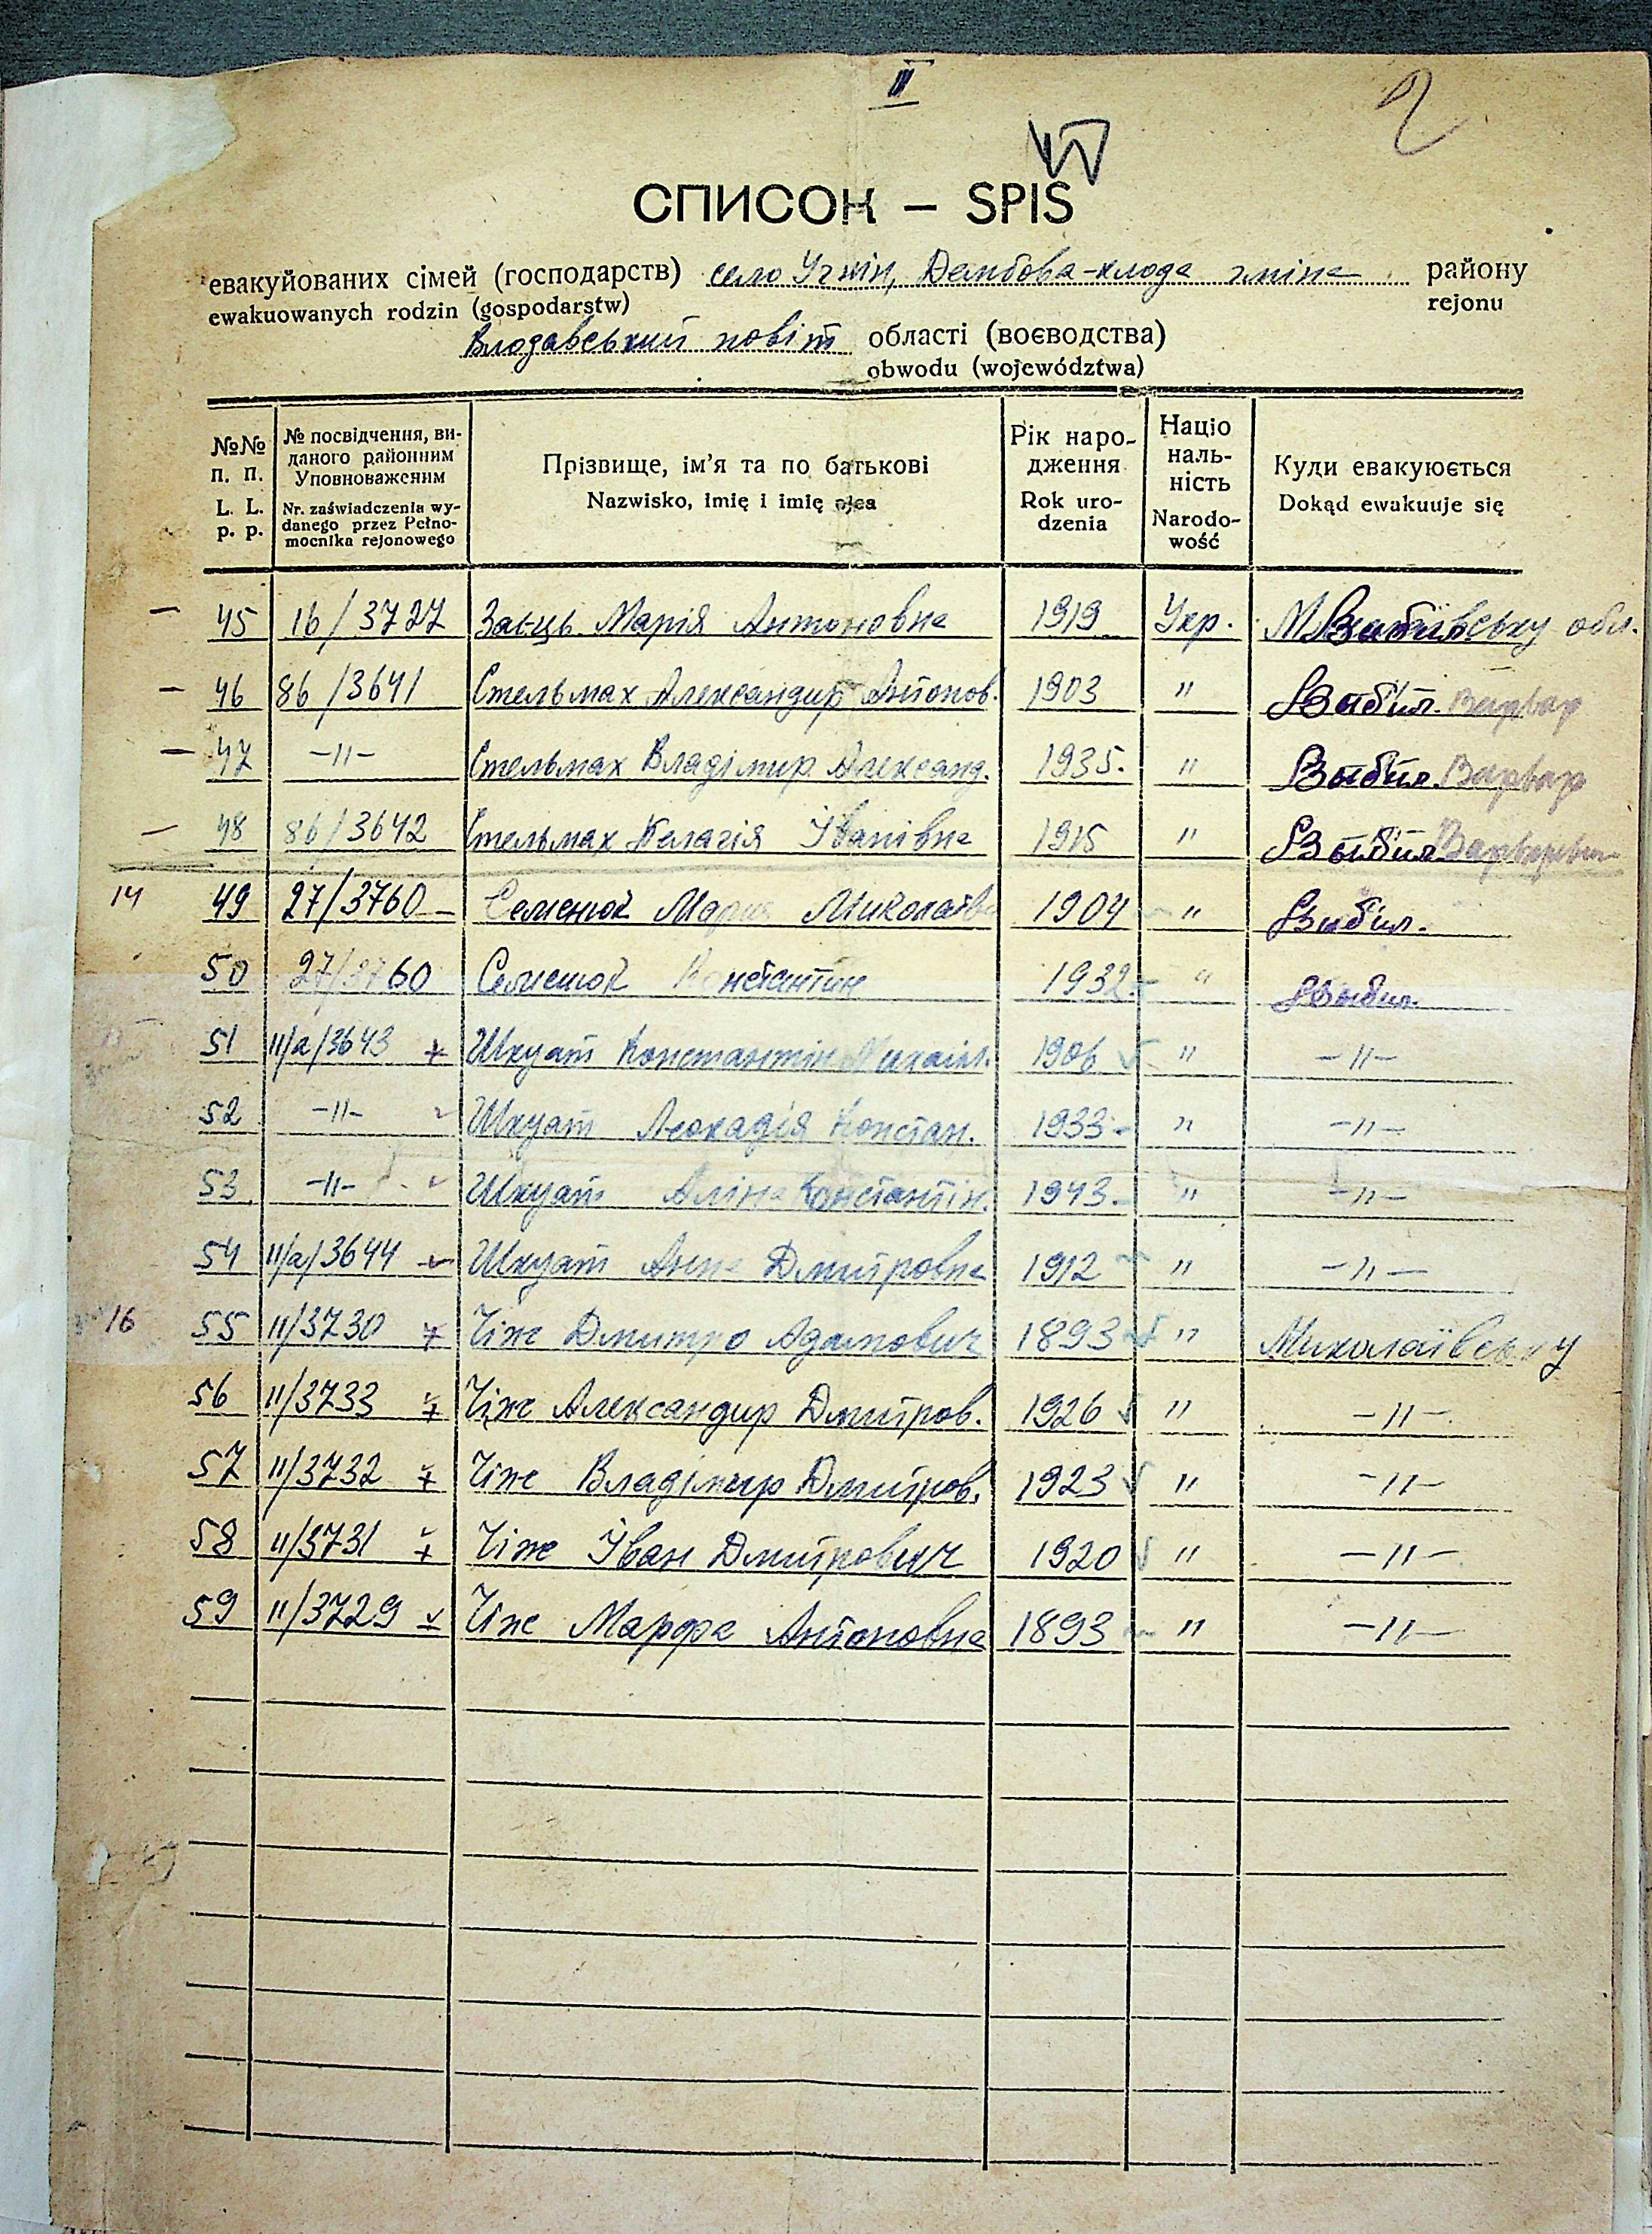 III
2
СПИСОК – SPIS
евакуйованих сімей (господарств) село Угнін, Дембова-клода гміна району
ewakuowanych rodzin (gospodarstw) rejonu
Влодавський повіт області (воєводства)
obwodu (województwa)
№№ п. п. L. L. p. p.
№ посвідчення, виданого районним Уповноваженим Nr. zaświadczenia wydanego przez Pełnomocnika rejonowego
Прізвище, ім'я та по батькові Nazwisko, imię i imię ojca
Рік народження Rok urodzenia
Національність Narodowość
Куди евакуюється Dokąd ewakuuje się
45 16/3727 Заєць Марія Антоновна 1919 Укр. обл.
46 86/3641 Стельмах Александир Антонов. 1903 " Выбыл.
47 -"- Стельмах Владімир Александ. 1935. " Выбыл.
48 86/3642 Стельмах Пелагія Іванівна 1915 " Выбыл
14 49 27/3760 Семенюк Мария Миколаївн 1904 " Выбыл.
50 27/3760 Семенюк Константин 1932 " Выбыл.
51 11/а/3643 + Шкуат Константін Михаіл. 1906 " -"-
52 -"- Шкуат Леокадія Констан. 1933 " -"-
53. -"- Шкуат Аліна Константін. 1943 " -"-
54 11/а/3644 Шкуат Анна Дмитровна 1912 " -"-
16 55 11/3730 + Чіж Дмитро Адамович 1893 " Миколаївську
56 11/3733 + Чіж Александир Дмитров. 1926 " -"-
57 11/3732 + Чіж Владімир Дмитров. 1923 " -"-
58 11/3731 + Чіж Іван Дмитрович 1920 " -"-
59 11/3729 Чіж Марфа Антоновна 1893 " -"-